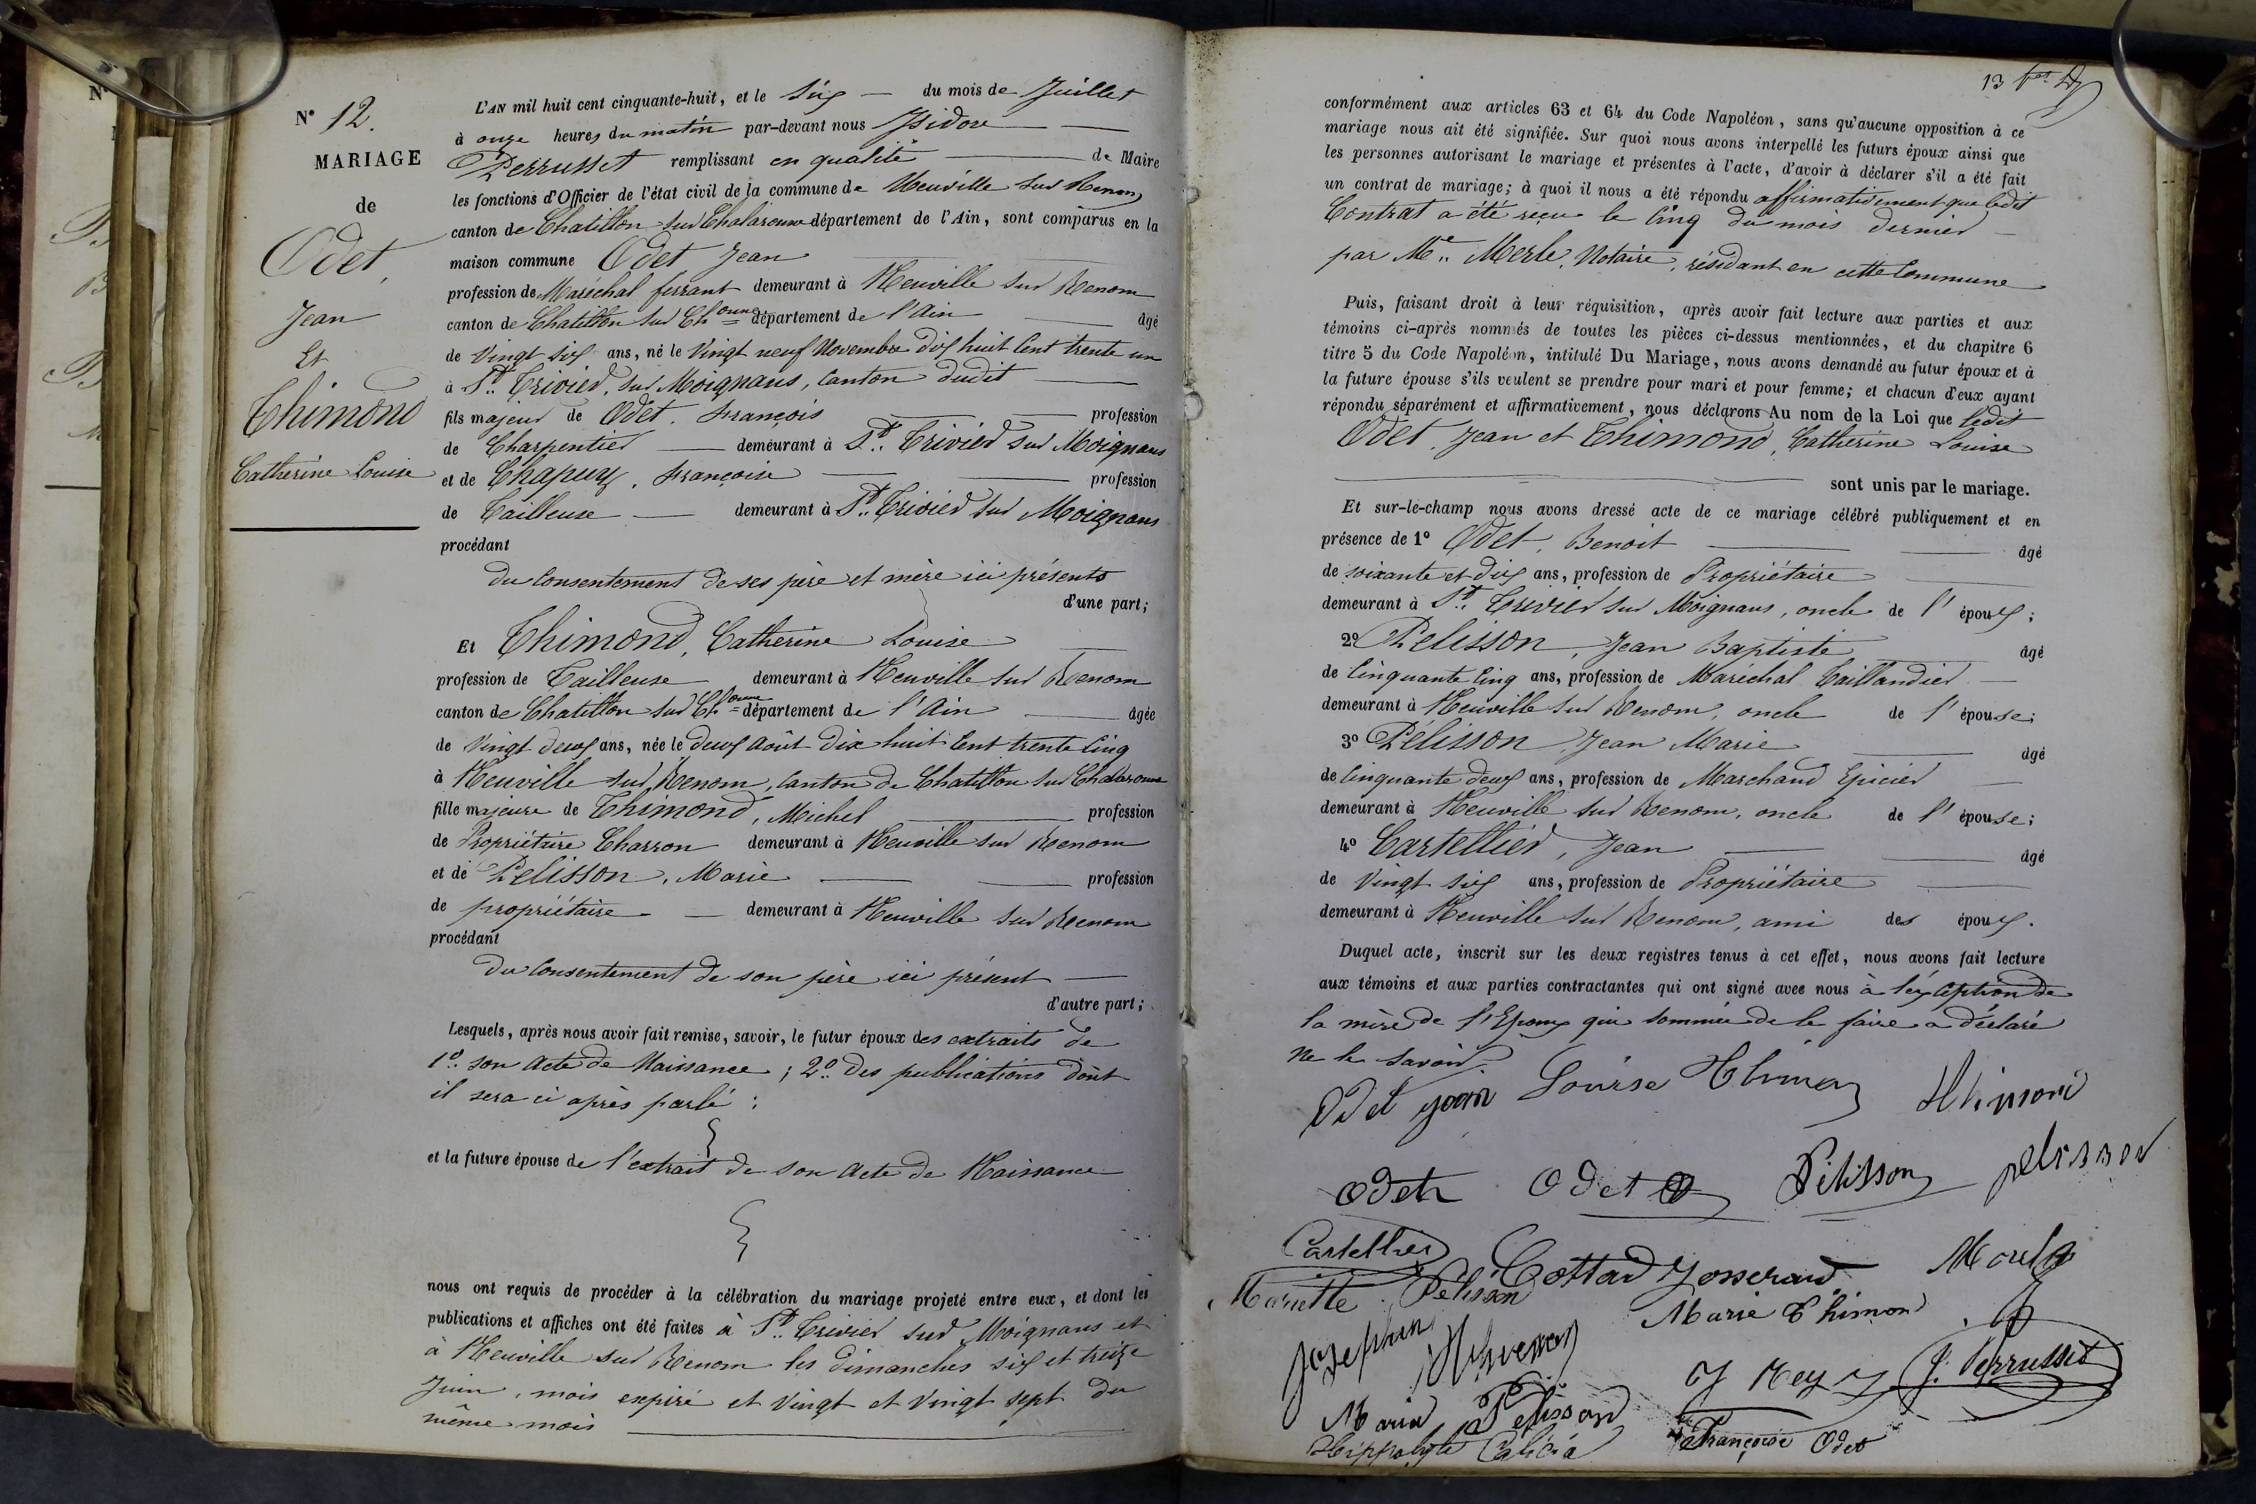 N° 12.
MARIAGE
de
Odet,
Jean
Et
Thimond
Catherine Louise
L'AN mil huit cent cinquante-huit, et le six du mois de Juillet
à onze heures du matin par-devant nous Isidore
Perrusset remplissant en qualité de Maire
les fonctions d'Officier de l'état civil de la commune de Neuville sur Renom
canton de Chatillon sur Chalaronne département de l'Ain, sont comparus en la
maison commune Odet Jean
profession de Maréchal ferrant demeurant à Neuville sur Renom
canton de Chatillon sur Chonne département de l'Ain âgé
de vingt six ans, né le vingt neuf Novembre dix huit cent trente un
à St. Trivier sur Moignans, canton dudit
fils majeur de Odet. François profession
de Charpentier demeurant à St. Trivier sur Moignans
et de Chapuy, Françoise profession
de Tailleuse demeurant à St. Trivier sur Moignans
procédant
du consentement de ses père et mère ici présents
d'une part;
Et Thimond, Catherine Louise
profession de Tailleuse demeurant à Neuville sur Renom
canton de Chatillon sur Chonne département de l'Ain âgée
de vingt deux ans, née le deux Août dix huit cent trente cinq
à Neuville sur Renom, canton de Chatillon sur Chalaronne
fille majeure de Thimond, Michel profession
de Propriétaire Charron demeurant à Neuville sur Renom
et de Pelisson, Marie profession
de propriétaire demeurant à Neuville sur Renom
procédant
du consentement de son père ici présent
d'autre part;
Lesquels, après nous avoir fait remise, savoir, le futur époux des extraits de
1° son acte de Naissance; 2° des publications dont
il sera ci après parlé:
et la future épouse de l'extrait de son acte de Naissance
nous ont requis de procéder à la célébration du mariage projeté entre eux, et dont les
publications et affiches ont été faites à St. Trivier sur Moignans et
à Neuville sur Renom les dimanches six et treize
Juin, mois expiré et vingt et vingt sept du
même mois
13
conformément aux articles 63 et 64 du Code Napoléon, sans qu'aucune opposition à ce
mariage nous ait été signifiée. Sur quoi nous avons interpellé les futurs époux ainsi que
les personnes autorisant le mariage et présentes à l'acte, d'avoir à déclarer s'il a été fait
un contrat de mariage; à quoi il nous a été répondu affirmativement que ledit
Contrat a été reçu le cinq du mois dernier
par Me. Merle, Notaire, résidant en cette Commune
Puis, faisant droit à leur réquisition, après avoir fait lecture aux parties et aux
témoins ci-après nommés de toutes les pièces ci-dessus mentionnées, et du chapitre 6
titre 5 du Code Napoléon, intitulé Du Mariage, nous avons demandé au futur époux et à
la future épouse s'ils veulent se prendre pour mari et pour femme; et chacun d'eux ayant
répondu séparément et affirmativement, nous déclarons Au nom de la Loi que ledit
Odet, Jean et Thimond, Catherine Louise
sont unis par le mariage.
Et sur-le-champ nous avons dressé acte de ce mariage célébré publiquement et en
présence de 1° Odet, Benoit âgé
de soixante et dix ans, profession de Propriétaire
demeurant à St. Trivier sur Moignans, oncle de l'époux;
2° Pelisson, Jean Baptiste âgé
de cinquante cinq ans, profession de Maréchal Taillandier
demeurant à Neuville sur Renom, oncle de l'épouse;
3° Pélisson, Jean Marie âgé
de cinquante deux ans, profession de Marchand Epicier
demeurant à Neuville sur Renom, oncle de l'épouse;
4° Cartellier, Jean âgé
de vingt six ans, profession de Propriétaire
demeurant à Neuville sur Renom, ami des époux.
Duquel acte, inscrit sur les deux registres tenus à cet effet, nous avons fait lecture
aux témoins et aux parties contractantes qui ont signé avec nous à l'exception de
la mère de l'Epoux qui sommée de le faire a déclaré
ne le savoir.
Odet jean Louise Thimon Thimond
Odet Odet Pélisson pelisson
Cartellier Cottard Josserand
Mariette Pélisson Marie Thimond
Josephine
J Rey J. Perrusset
Maria Pelisson
Hippolyte Françoise Odet